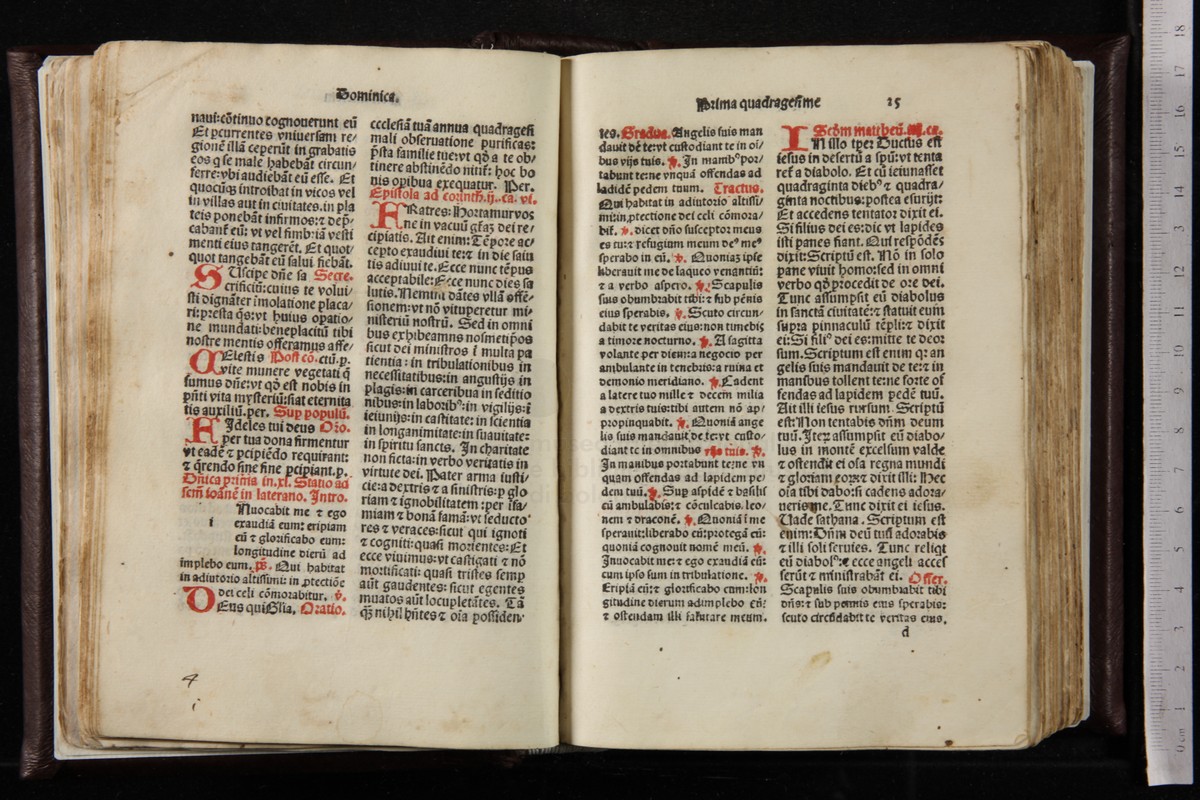 Dominica.
naui: cōtinuo cognouerunt eū
Et pcurrentes vniuersam re-
gionē illā ceperūt in grabatis
eos q se male habebāt circun/
ferre: vbi audiebāt eū esse. Et
quocūq; introibat in vicos vel
in villas aut in ciuitates. in pla
teis ponebāt infirmos: ⁊ dep̄-
cabant̄ eū: vt vel fimbriā vesti
menti eius tangerēt. Et quot-
quot tangebāt eū salui fiebāt.
SUscipe dn̄e sa Secre.
crificiū: cuius te volui/
sti dignāter īmolatione placa/
ri: p̄sta q̄s: vt huius opatio/
ne mundati: beneplacitū tibi
nostre mentis offeramus affe/
CElestis Post cō. ctū. p.
vite munere vegetati q̄
sumus dn̄e: vt qd̄ est nobis in
p̄nti vita mysteriū: fiat eternita
tis auxiliū. per. Sup populū.
FIdeles tui deus Oro.
per tua dona firmentur
vt eadē ⁊ pcipiēdo requirant:
⁊ q̄rendo sine fine pcipiant. p.
Dn̄ica prima in. xl. Statio ad
scm̄ ioānē in laterano. Intro.
i Nuocabit me ⁊ ego
exaudiā eum: eripiam
eū ⁊ glorificabo eum:
longitudine dierū ad
implebo eum. ps̄. Qui habitat
in adiutorio altissimi: in ptectiōe
dei celi cōmorabitur. ℣.
DEus qui Glia. Oratio.
ecclesiā tuā annua quadragesi
mali obseruatione purificas:
p̄sta familie tue: vt qd̄ a te ob/
tinere abstinēdo nitit̄: hoc bo
nis opibus exequatur. Per.
Epistola ad corinth. ij. ca. vi.
FRatres: Hortamur vos
ne in vacuū gr̄az dei re/
cipiatis. Ait enim: Tēpore ac/
cepto exaudiui te: ⁊ in die salu
tis adiuui te. Ecce nunc tēpus
acceptabile: Ecce nunc dies sa
lutis. Nemini dātes vllā offē-
sionem: vt nō vituperetur mi-
nisteriū nostrū. Sed in omni
bus exhibeamns nosmetip̄os
sicut dei ministros ī multa pa
tientia: in tribulationibus in
necessitatibus: in angustijs in
plagis: in carceribus in seditio
nibus: in laboribꝰ: in vigilijs: ī
ieiunijs: in castitate: in scientia
in longanimitate: in suauitate:
in spiritu sancto. In charitate
non ficta: in verbo veritatis in
virtute dei. Pater arma iusti/
cie: a dextris ⁊ a sinistris: p glo
riam ⁊ ignobilitatem: per īfa/
miam ⁊ bonā famā: vt seducto
res ⁊ veraces: sicut qui ignoti
⁊ cogniti: quasi morientes: Et
ecce viuimus: vt castigati ⁊ nō
mortificati: quasi tristes semp
aūt gaudentes: sicut egentes
multos aūt locupletātes. Tā
q̄ȝ nihil hn̄tes ⁊ oīa possiden/
Prima quadragesime 25
tes. Gradua. Angelis suis man
dauit dē te: vt custodiant te in oī/
bus vijs tuis. ℣. In mambꝰ por/
tabunt te: ne vnquā offendas ad
lapidē pedem tuum. Tractus.
Qui habitat in adiutorio altissi/
mi: in ptectione dei celi cōmora/
bit̄. ℣. dicet dn̄o susceptor meus
es tu: ⁊ refugium meum deꝰ meꝰ
sperabo in eū. ℣. Quoniaȝ ipse
liberauit me de laqueo venantiū:
⁊ a verbo aspero. ℣. Scapulis
suis obumbrabit tibi: ⁊ sub pēnis
eius sperabis. ℣. Scuto circun/
dabit te veritas eius: non timebis
a timore nocturno. ℣. A sagitta
volante per diem: a negocio per
ambulante in tenebris: a ruina et
demonio meridiano. ℣. Cadent
a latere tuo mille ⁊ decem milia
a dextris tuis: tibi autem nō ap/
propinquabit. ℣. Quoniā ange
lis suis mandauit de te: vt custo/
diant te in omnibus vijs tuis. ℣.
In manibus portabunt te: ne vn
quam offendas ad lapidem pe/
dem tuū. ℣. Sup aspidē ⁊ basilis
cū ambulabis: ⁊ cōculcabis. leo/
nem ⁊ draconē. ℣. Quoniā ī me
sperauit: liberabo eū: protegā eū:
quoniā cognouit nomē meū. ℣.
Inuocabit me: ⁊ ego exaudiā eū:
cum ipso sum in tribulatione. ℣.
Eripiā eū: ⁊ glorificabo eum: lon
gitudine dierum adimplebo eū:
⁊ ostendam illi salutare meum.
Scd̄m mattheū. iiij. ca.
IN illo tpe: Ductus est
iesus in desertū a spū: vt tenta
ret̄ a diabolo. Et cū ieiunasset
quadraginta diebꝰ ⁊ quadra/
ginta noctibus: postea esurijt:
Et accedens tentator dixit ei.
Si filius dei es: dic vt lapides
isti panes fiant. Qui respōdēs
dixit: Scriptū est. Nō in solo
pane viuit homo: sed in omni
verbo qd̄ procedit de ore dei.
Tunc assumpsit eū diabolus
in sanctā ciuitatē: ⁊ statuit eum
supra pinnaculū tēpli: ⁊ dixit
ei: Si filiꝰ dei es: mitte te deor
sum. Scriptum est enim q: an
gelis suis mandauit de te: ⁊ in
manibus tollent te: ne forte of
fendas ad lapidem pedē tuū.
Ait illi iesus rursum. Scriptū
est: Non tentabis dn̄m deum
tuū. Iteȝ assumpsit eū diabo/
lus in montē excelsum valde
⁊ ostendit ei oīa regna mundi
⁊ gloriam eorȝ: ⁊ dixit illi: Hec
oīa tibi dabo: si cadens adora/
ueris me. Tunc dixit ei iesus.
Uade sathana. Scriptum est
enim: Dn̄m deū tuū adorabis
⁊ illi soli seruies. Tunc reliqt
eū diabolꝰ: ⁊ ecce angeli acces
serūt ⁊ ministrabāt ei. Offer.
Scapulis suis obumbrabit tibi
dn̄s: ⁊ sub pennis eius sperabis:
scuto circūdabit te veritas eius.
d
4